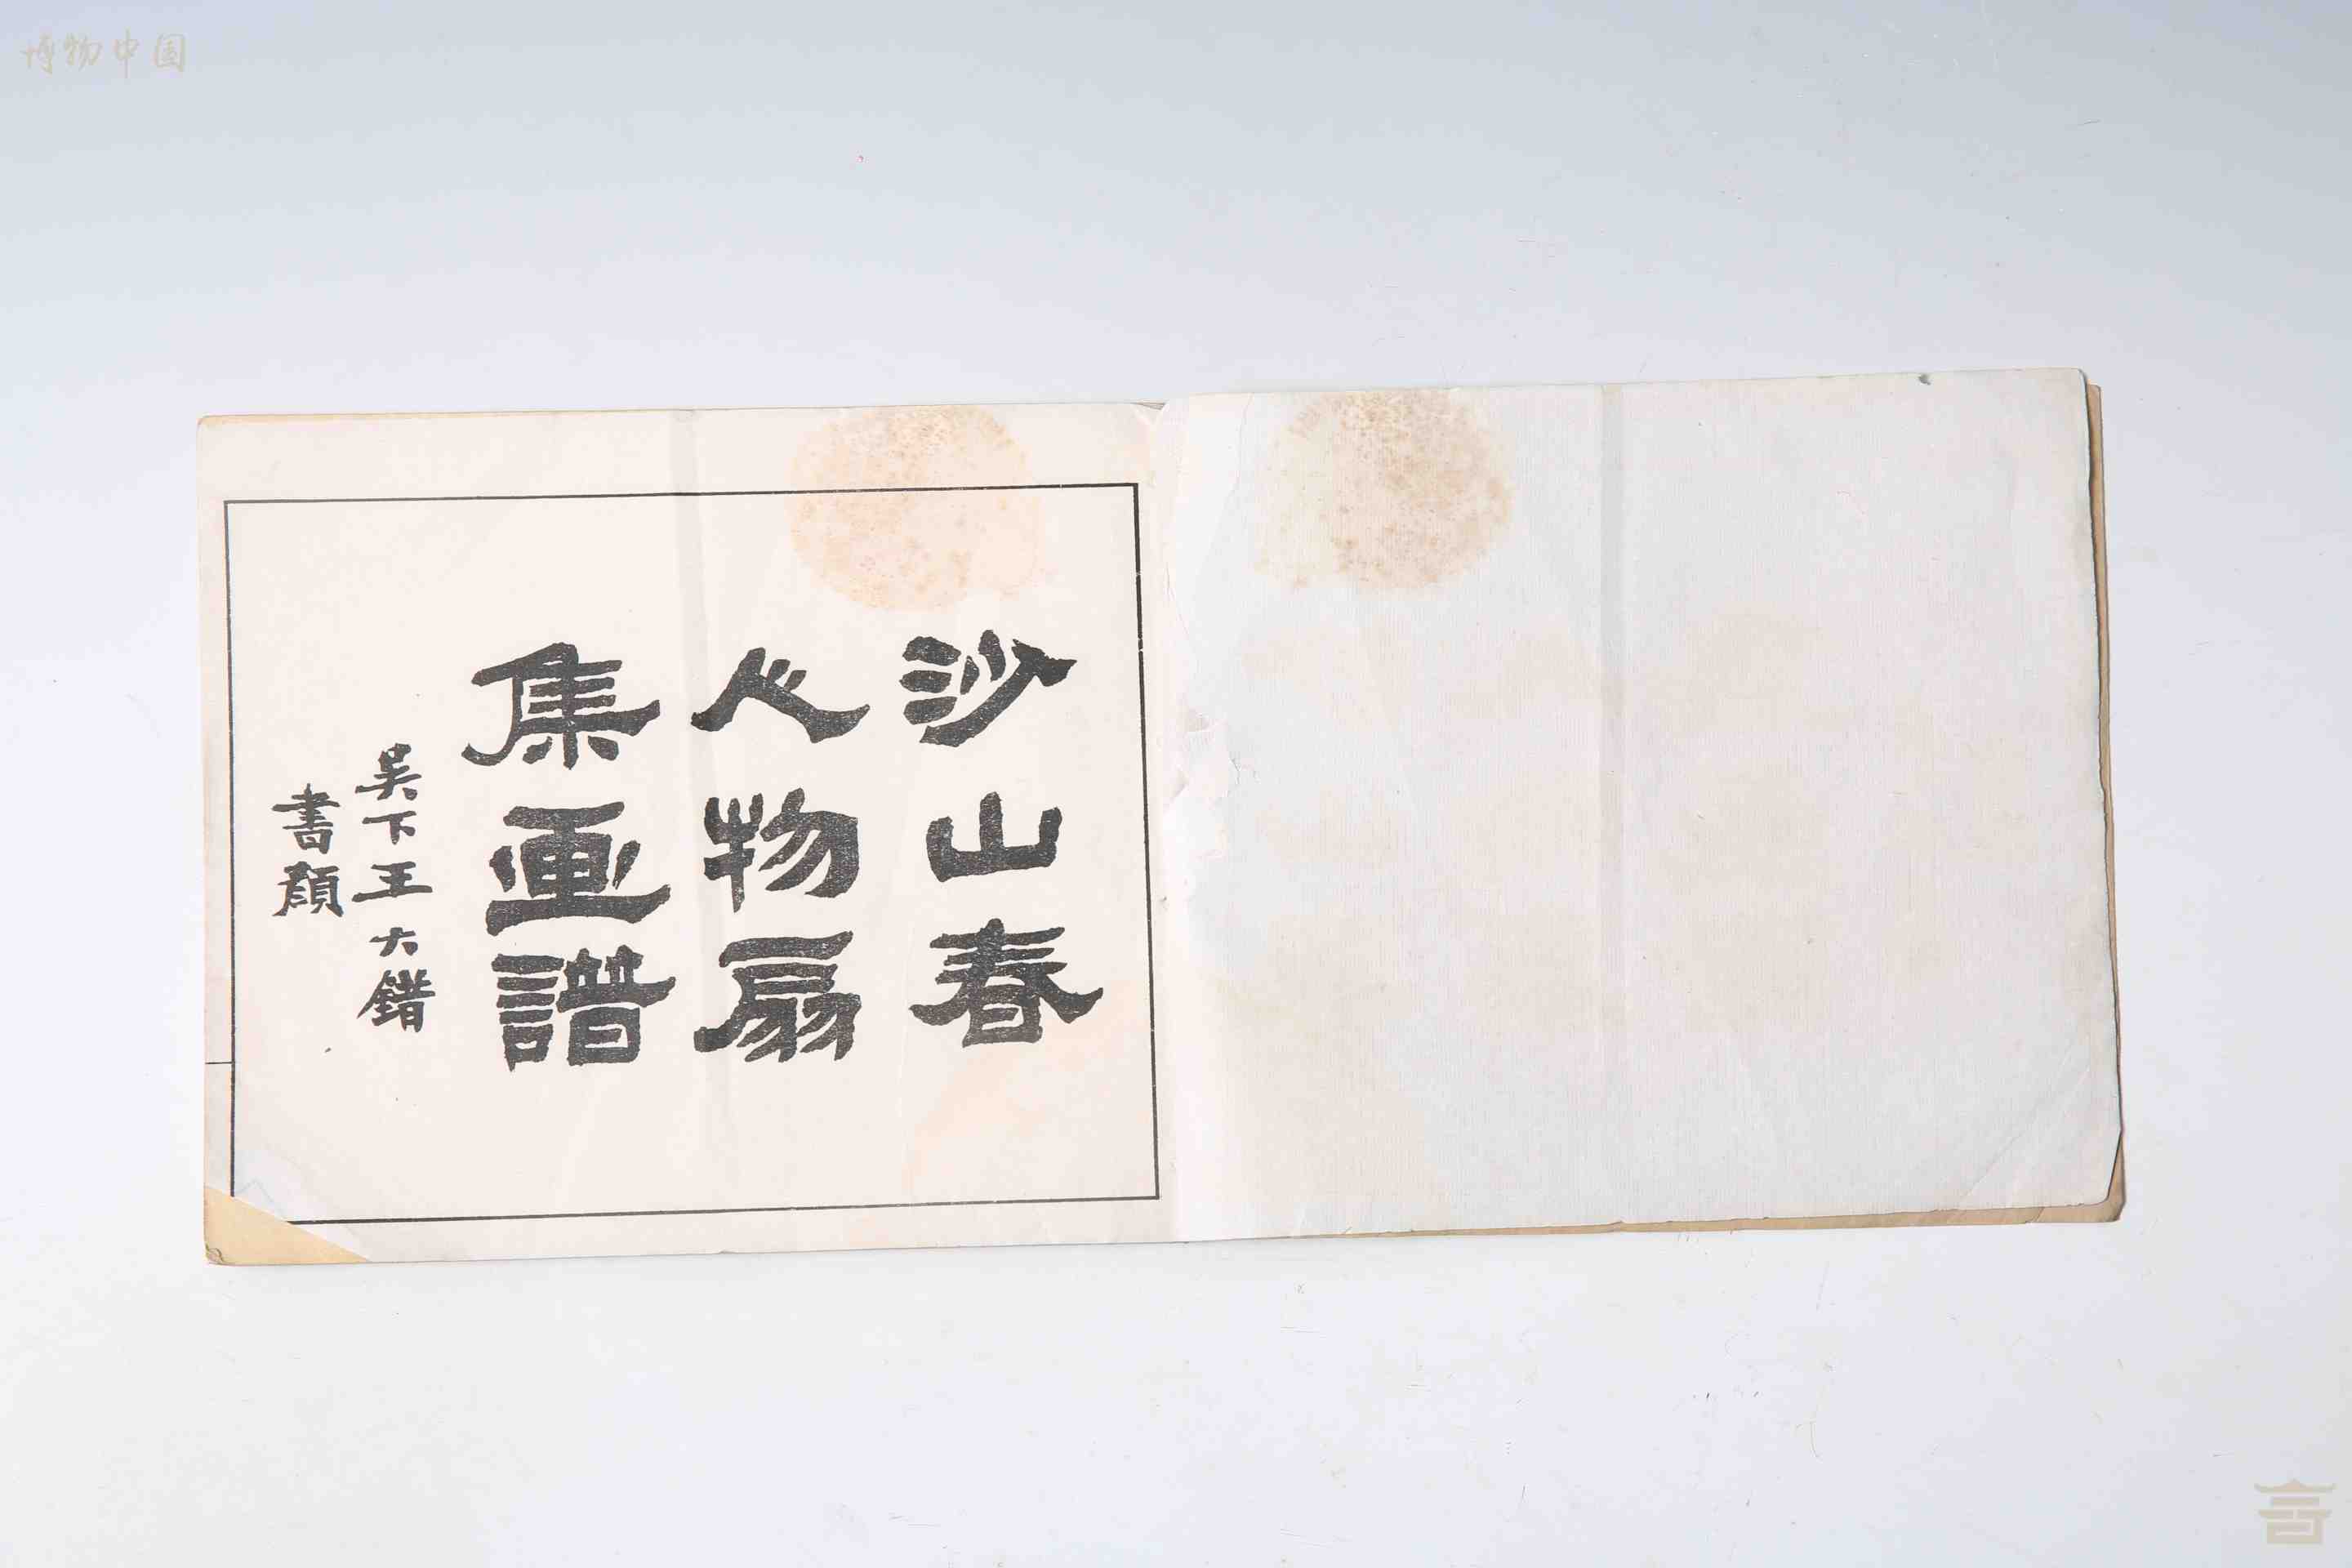 博物中国
沙山春
人物扇
集画譜
吳下王大錯
書顏